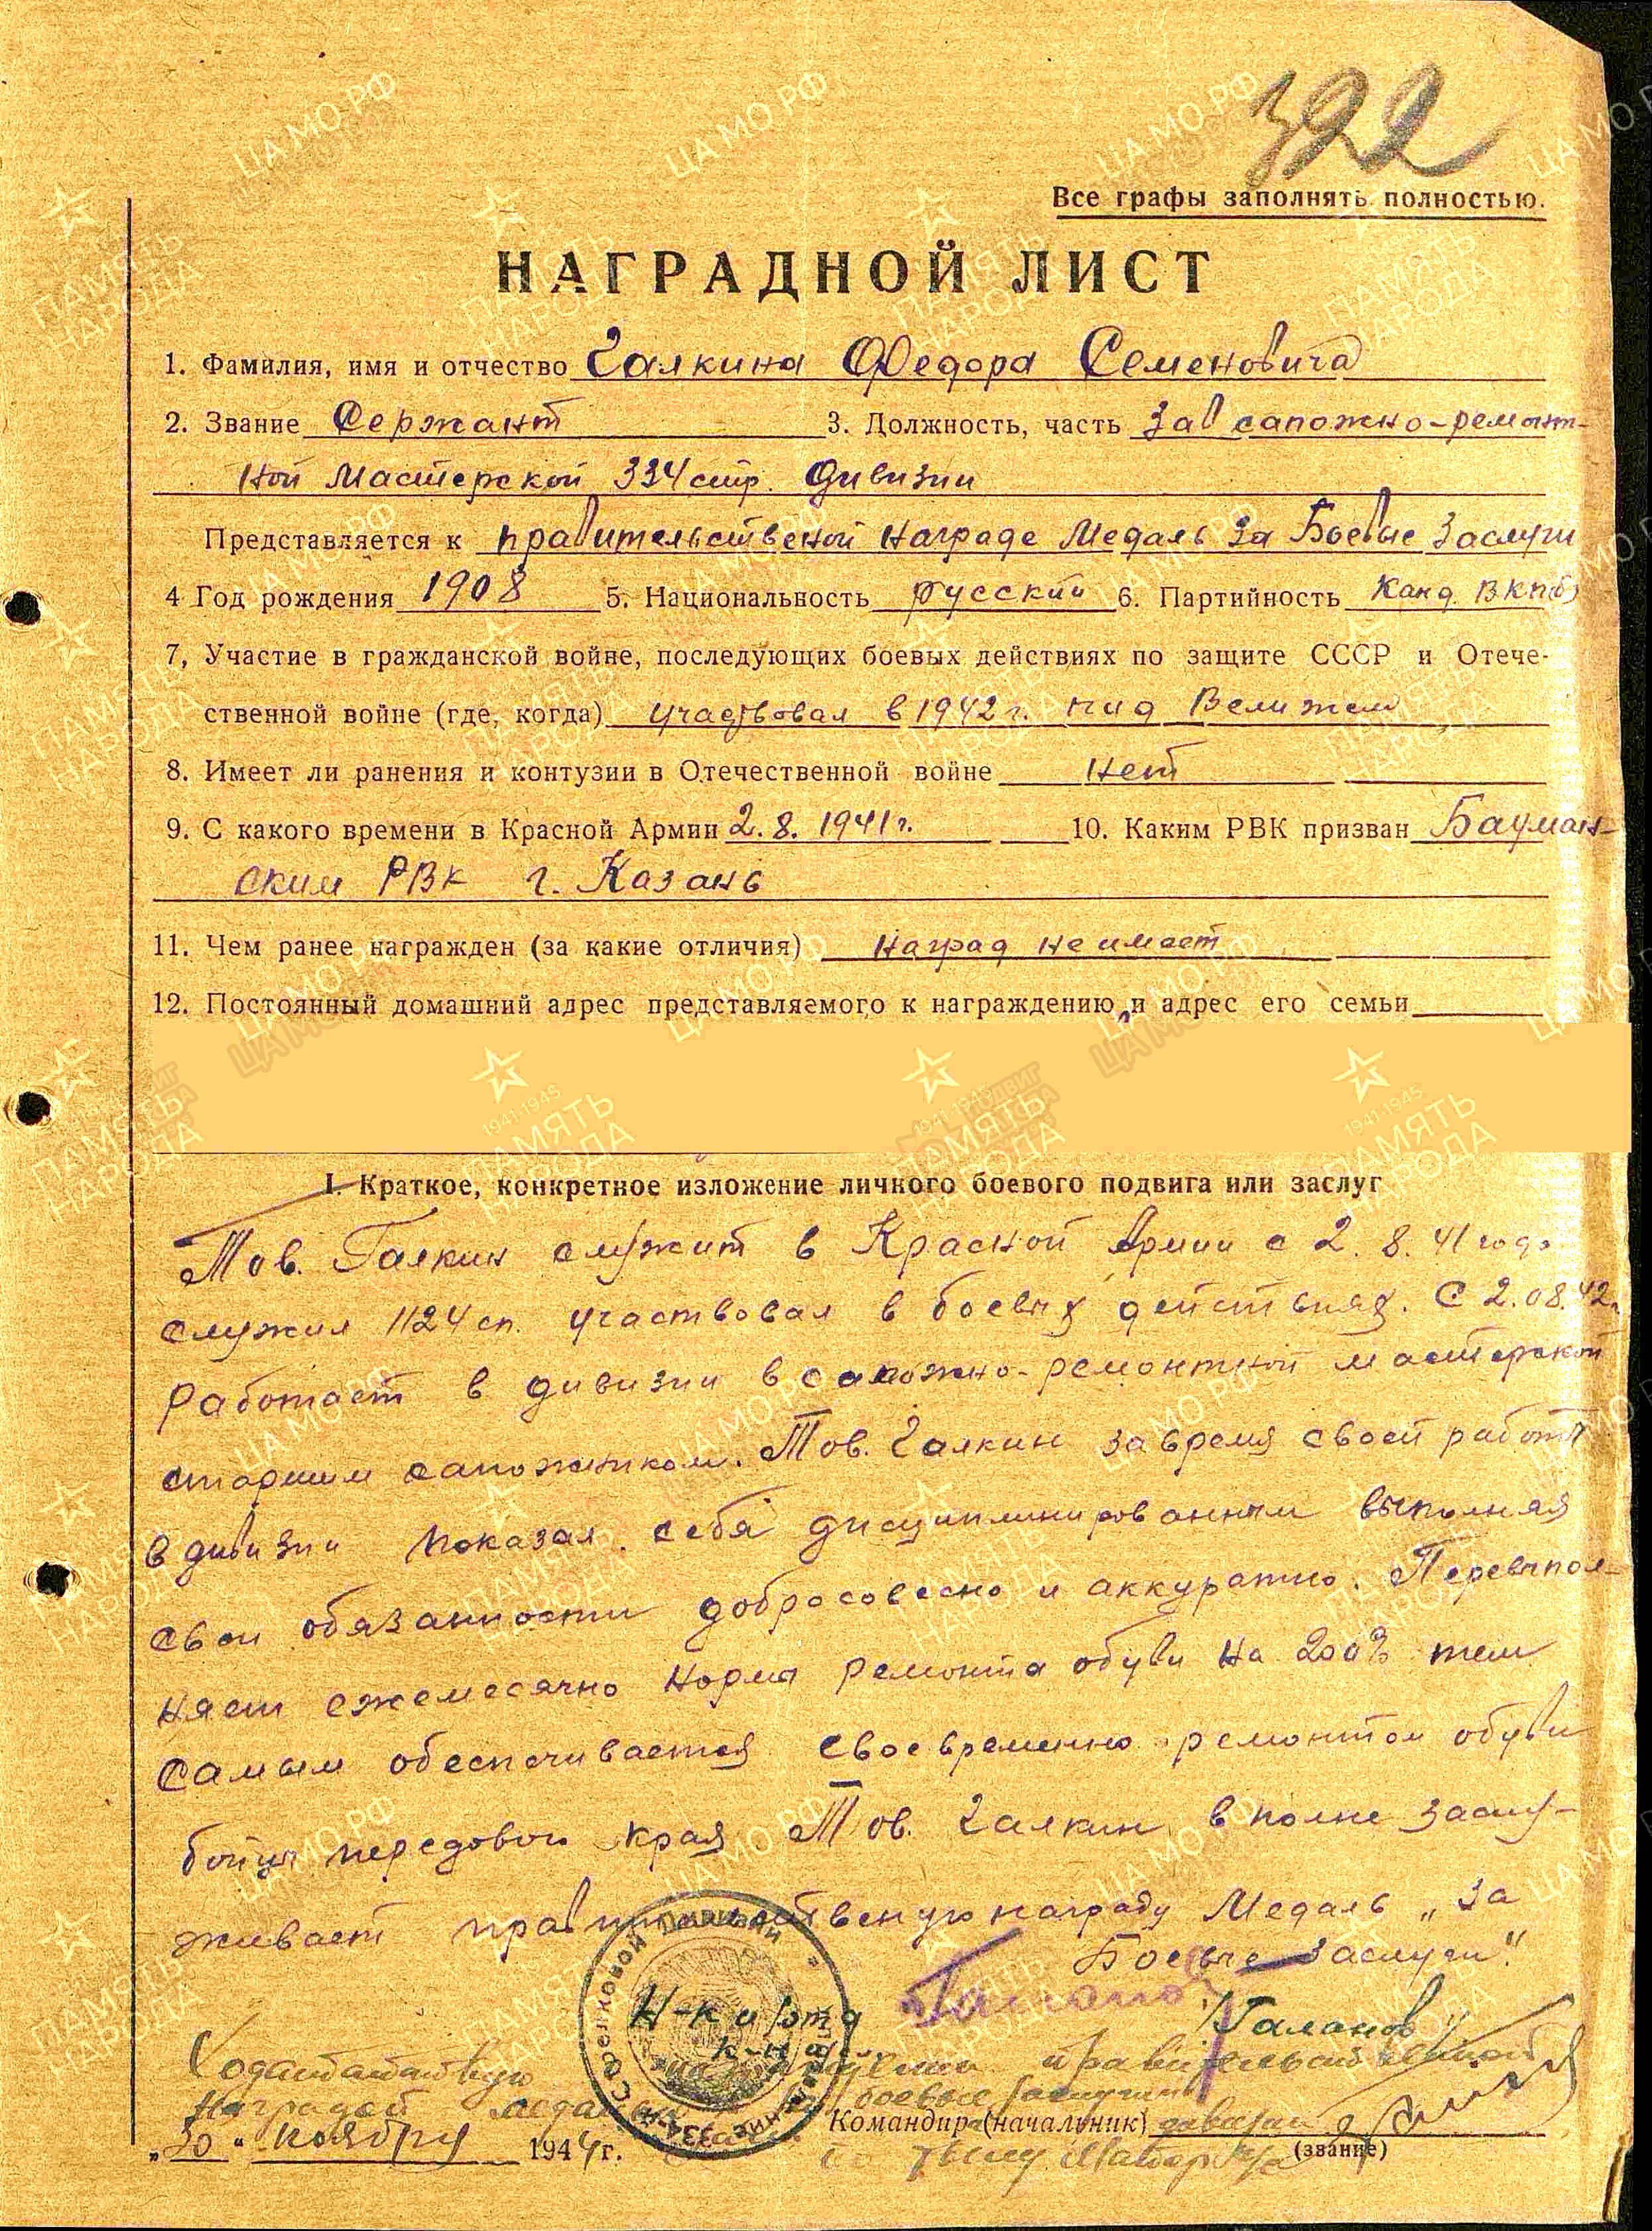 322
Все графы заполнять полностью.
НАГРАДНОЙ ЛИСТ
1. Фамилия, имя и отчество Галкина Федора Семеновича
2. Звание Сержант 3. Должность, часть Зав сапожно-ремонт-
ной Мастерской 334 стр. дивизии
Представляется к правительственой Награде Медаль За Боевые Заслуги
4 Год рождения 1908 5. Национальность русский 6. Партийность Канд. ВКП(б)
7, Участие в гражданской войне, последующих боевых действиях по защите СССР и Отече-
ственной войне (где, когда) участвовал в 1942 г. под Велижем
8. Имеет ли ранения и контузии в Отечественной войне Нет
9. С какого времени в Красной Армии 2.8.1941г. 10. Каким РВК призван Бауман-
ским РВК г. Казань
11. Чем ранее награжден (за какие отличия) Наград не имеет
12. Постоянный домашний адрес представляемого к награждению и адрес его семьи
I. Краткое, конкретное изложение личного боевого подвига или заслуг
Тов. Галкин служит в Красной Армии с 2.8.41 года
служил 1124 сп. участвовал в боевых действиях. С 2.08.42г
Работает в дивизии в сапожно-ремонтной мастерской
старшим сапожником. Тов. Галкин за время своей работы
в дивизии показал себя дисциплинированным выполняя
свои обязанности добросовесно и аккуратно. Перевыпол-
няет ежемесячно норму ремонта обуви на 200% тем
самым обеспечивается своевременно ремонтом обуви
бойцы передового края Тов. Галкин вполне заслу-
живает правительственую награду Медаль „За
Боевые Заслуги".
Н-к
Галанов
к-н
/Галанов/
Ходатайствую правительственной
Наградой медалью боевые заслуги
Командир (начальник) дивизии
„30" ноября 1944 г.
(звание)